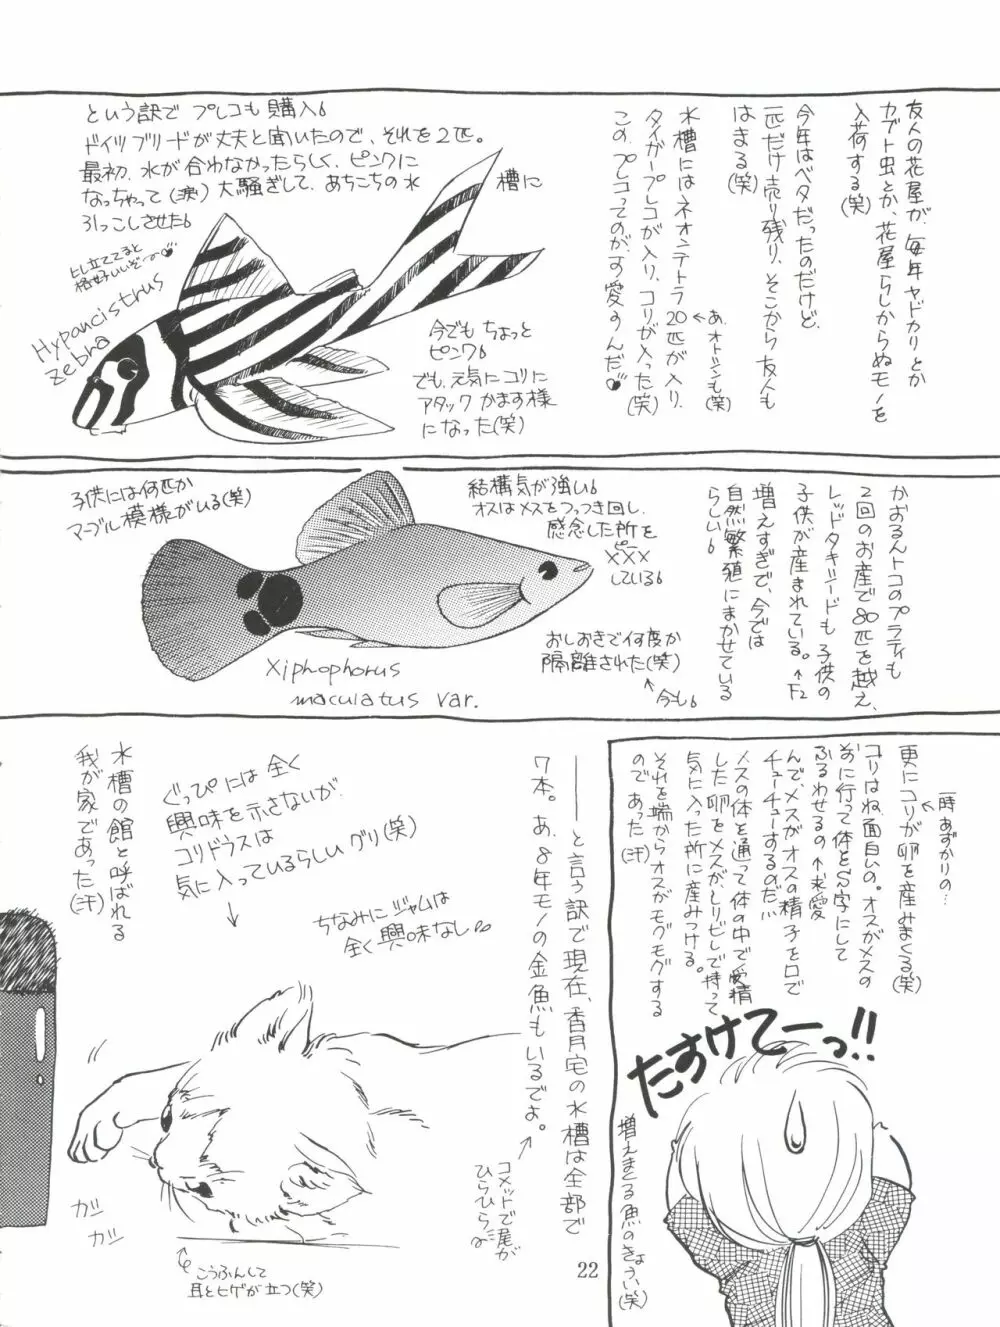 友人の花屋が、毎年ヤドカリとか
カブト虫とか、花屋らしからぬモノを
入荷する(笑)
今年はベタだったのだけど、
一匹だけ売り残り、そこから友人も
はまる(笑)
水槽にはネオンテトラ20匹が入り、
←あ、オトシンも(笑)
タイガープレコが入り、コリが入った(笑)
この、プレコってのが、す愛すんだ。
という訳で プレコも購入。
ドイツブリードが丈夫と聞いたので、それを2匹。
最初、水が合わなかったらしく、ピンクに
なっちゃって(涙)大騒ぎして、あちこちの水
槽に
引っこしさせた。
ヒレ立ててると
格好いいぞー
Hypancistrus
zebra
今でもちょっと
ピンク。
でも、元気にコリに
アタックかます様
になった(笑)
かおるんトコのプラティも
2回のお産で80匹を越え、
レッドタキシードも子供の
子供が産まれている。←F2
増えすぎで、今では
自然繁殖にまかせている
らしい。
子供には何匹か
マーブル模様がいる(笑)
結構気が強い。
オスはメスをつっつき回し、
感念した所を
ピー
×××
している。
おしおきで何度か
隔離された(笑)
↑今も。
Xiphophorus
maculatus var.
一時あずかりの…
更にコリが卵を産みまくる(笑)
コリはね、面白いの。オスがメスの
前に行って体をS字にして
ふるわせるの←求愛
んで、メスがオスの精子を口で
チューチューするのだ!!
メスの体を通って体の中で受精
した卵をメスがヒレで持って
気に入った所に産みつける。
それを端からオスがモグモグする
のであった(汗)
たすけてーっ!!
増えまくる魚のきょうい(笑)
――と言う訳で現在、香月宅の水槽は全部で
7本。あ、8年モノの金魚もいるでよ。
コメットで尾が
ひらひら
ぐっぴには全く
興味を示さないが、
コリドラスは
気に入っているらしいグリ(笑)
ちなみにジャムは
全く興味なし
水槽の館と呼ばれる
我が家であった(汗)
ガジ
ガジ
こうふんして
耳とヒゲが立つ(笑)
22